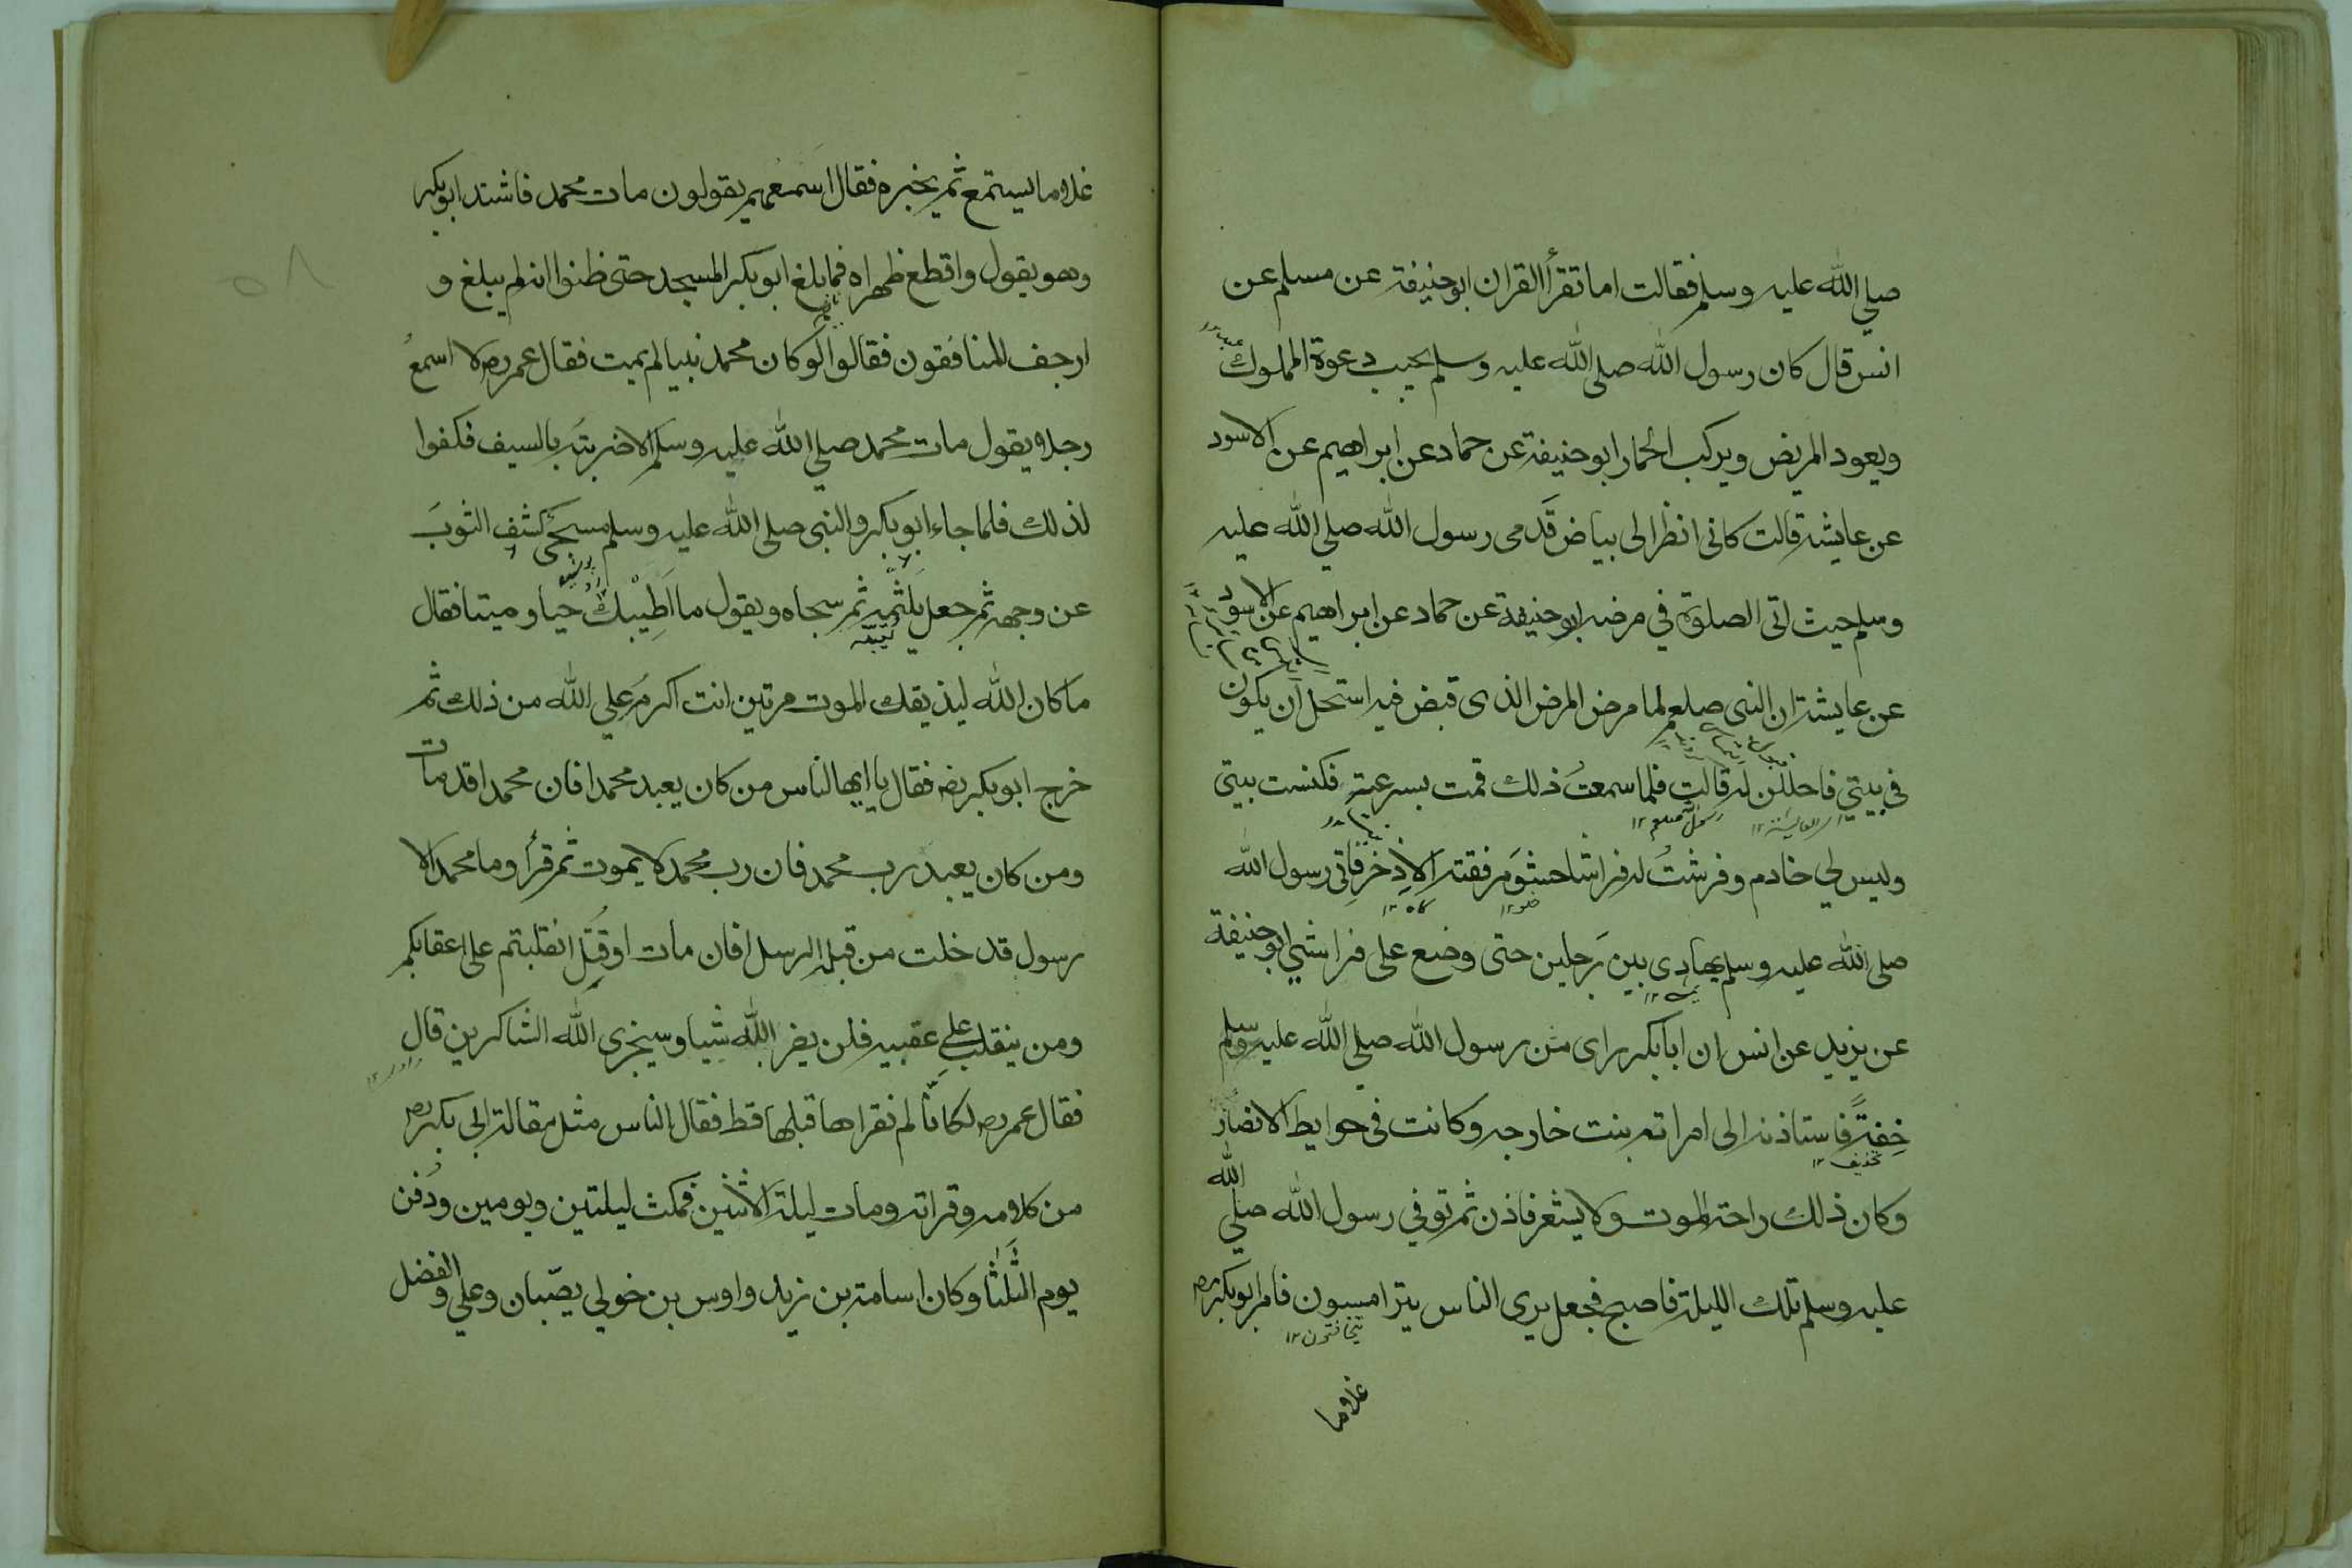 صلي الله عليه وسلم فقالت اما تقرأ القران ابو حنيفة عن مسلم عن
انس قال كان رسول الله صلى الله عليه وسلم يجيب دعوة المملوك
ويعود المريض ويركب الحمار ابو حنيفة عن حماد عن ابراهيم عن الاسود
عن عايشه قالت كانى انظر الى بياض قَدمى رسول الله صلي الله عليه
وسلم حيث اتى الصلوة في مرضه ابو حنيفة عن حماد عن ابراهيم عن الاسود
عن عايشة ان النبى صلعم لما مرض المرض الذى قبض فيه استحل ان يكون
فى بيتي فاحللن له قالت فلما سمعتُ ذلك قمت بسرعة فكنست بيتى
رسول الله صلعم ١٢
وليس لي خادم وفرشتُ له فراشا حشو مرفقته الاِذخر فاتى رسول الله
كاه ١٢
صلى الله عليه وسلم يهادى بين رجلين حتى وضع على فراشي ابو حنيفة
عن يزيد عن انس ان ابا بكر راى من رسول الله صلي الله عليه وسلم
خِفةً فاستاذنه الى امراته بنت خارجه وكانت فى حوايط الانصار
تخفيف ١٢
وكان ذلك راحة الموت ولا يشعر فاذن ثم توفي رسول الله صلي الله
عليه وسلم تلك الليلة فاصبح فجعل يرى الناس يترامسون فامر ابو بكر رض
يتخافتون ١٢
غلاما
غلاما يستمع ثم يخبره فقال اسمعهم يقولون مات محمد فاشتد ابو بكر
وهو يقول واقطع ظهراه فما بلغ ابو بكر المسجد حتى ظنوا انه لم يبلغ و
ارجف المنافقون فقالوا لو كان محمد نبيا لم يمت فقال عمر رض لا اسمعُ
رجلا يقول مات محمد صلي الله عليه وسلم الا ضربته بالسيف فكفوا
لذلك فلما جاء ابو بكر والنبى صلى الله عليه وسلم مسجى كشف الثوبَ
عن وجهه ثم جعل يلثمه ثم سجاه ويقول ما اَطِيْبك حيا وميتا فقال
ما كان الله ليذيقك الموت مرتين انت اكرمُ علي الله من ذلك ثم
خرج ابو بكر رضه فقال يا ايها الناس من كان يعبد محمدا فان محمدا قد مات
ومن كان يعبد رب محمد فان رب محمد لا يموت ثم قرأ وما محمد الا
رسول قد خلت من قبله الرسل افان مات او قُتِل انقلبتم على اعقابكم
ومن ينقلب علي عقبيه فلن يضر الله شيا وسيجزى الله الشاكرين قال
فقال عمر رض لكانّا لم نقراها قبلها قط فقال الناس مثل مقالة ابى بكر رض
من كلامه وقراته ومات ليلة الاثنين فمكث ليلتين ويومين ودُفن
يوم الثّلثٰا وكان اسامة بن زيد واوس بن خولي يصّبان وعلي والفضل
٥٨